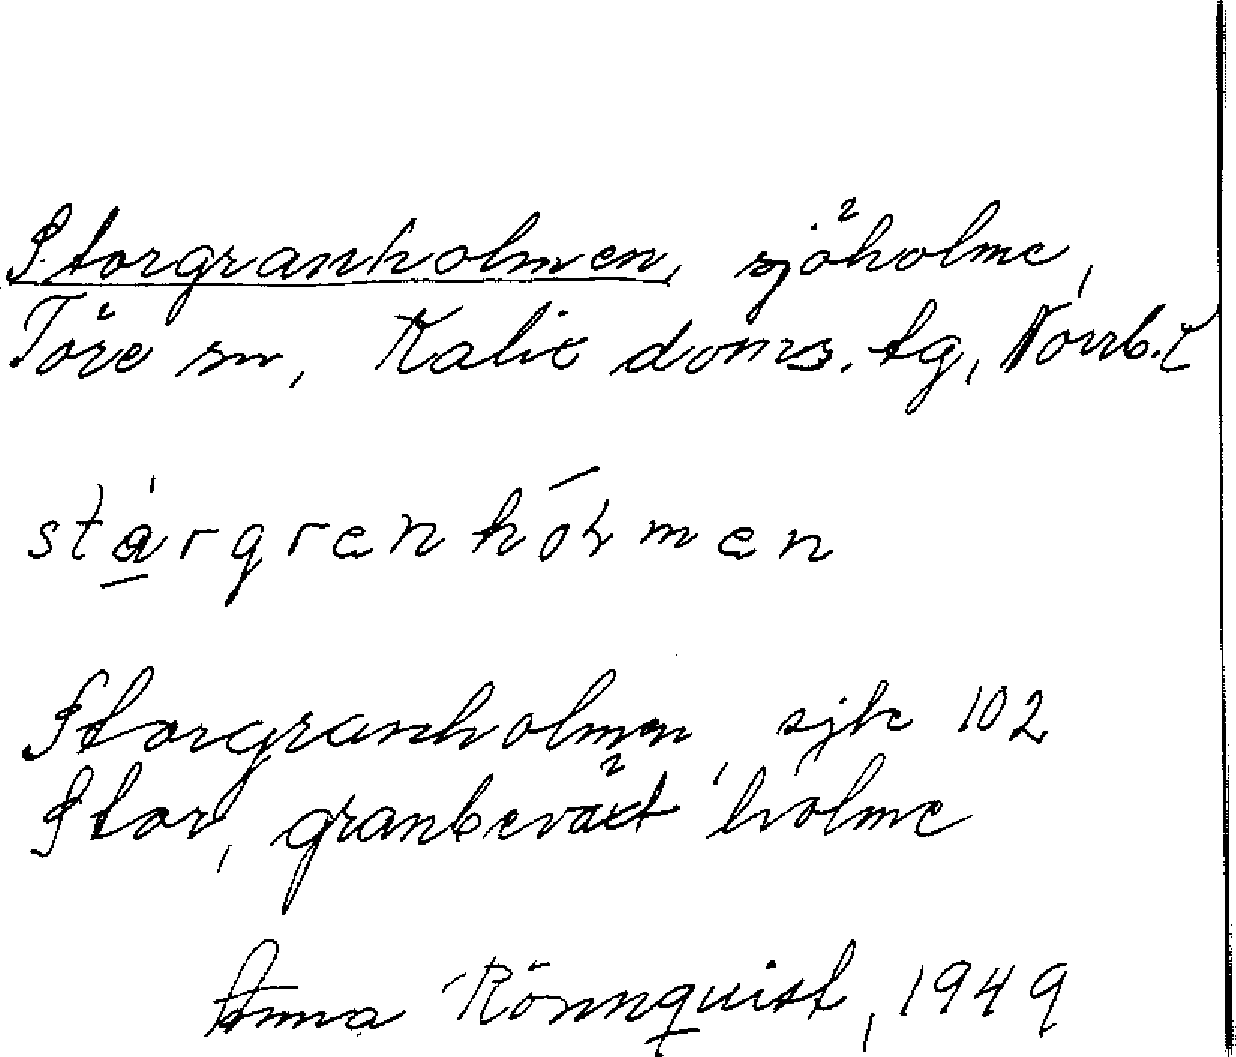 Storgranholmen, sjöholme,
Töre sn, Kalix doms. tg, Norrb. l
stargrenhólmen
Storgranholmen, sjk 102
Stor, granbeväxt holme
Anna Rönnquist, 1949